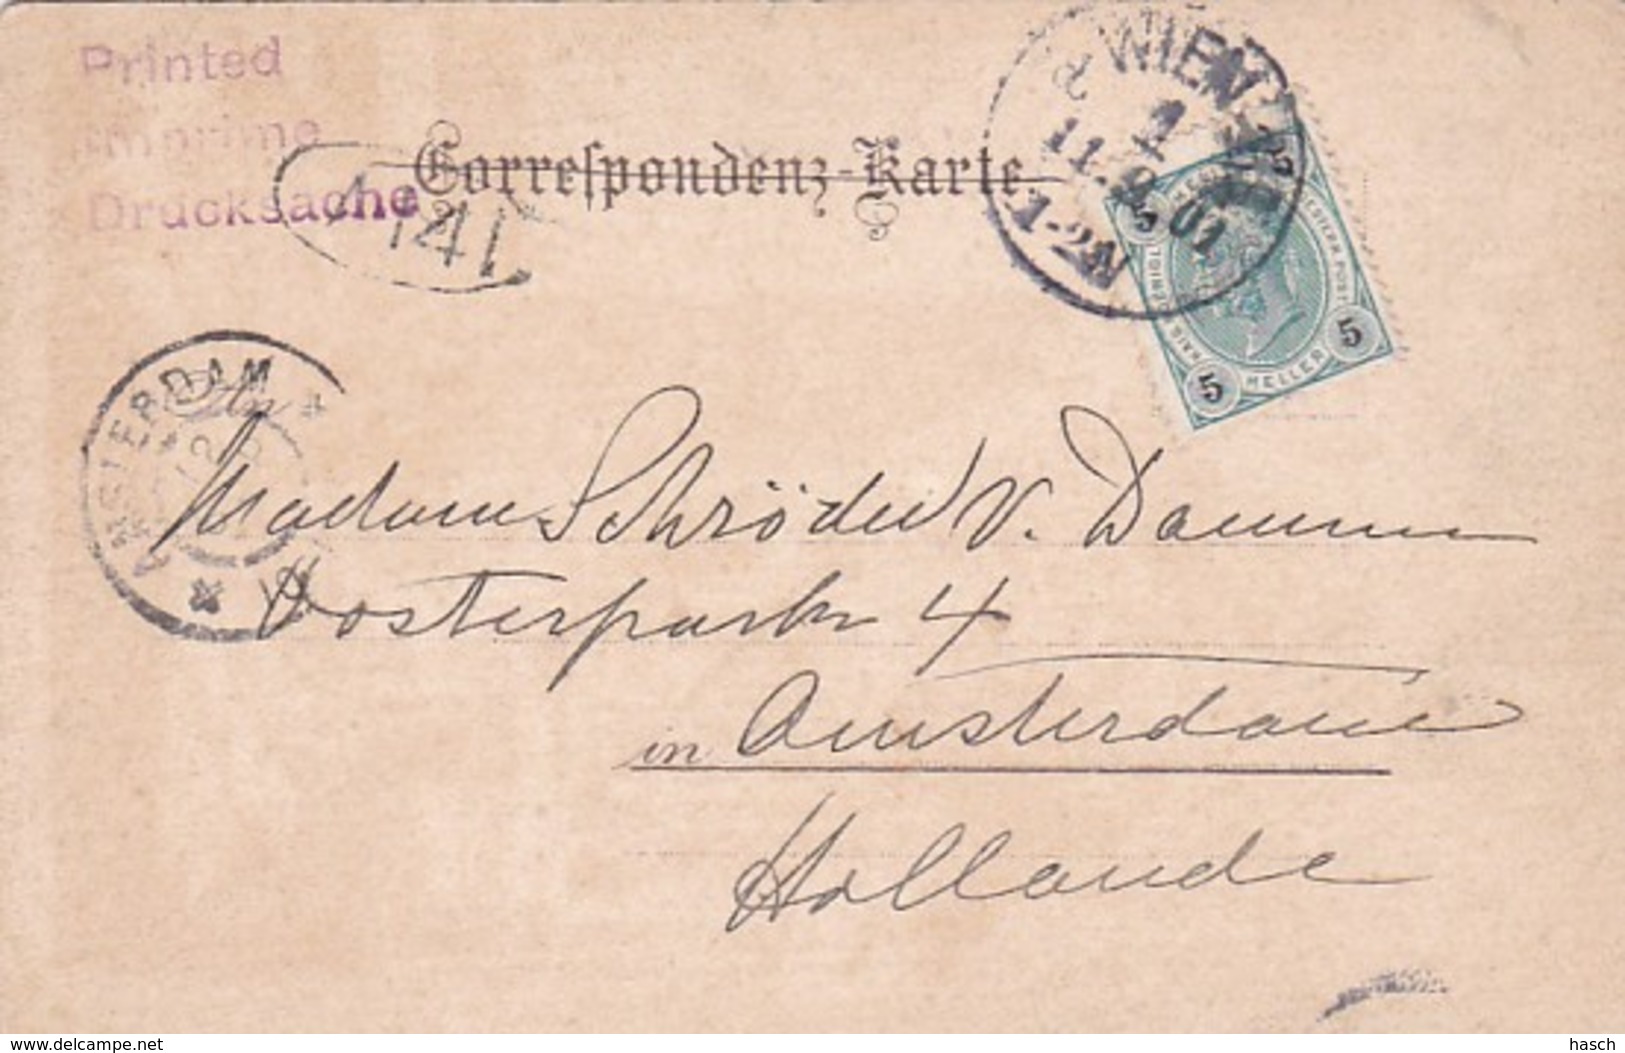 Printed
Imprimé
Drucksache
Correspondenz-Karte.
141
WIEN
1
11. 01
1-2N
5
5
5
HELLER
AMSTERDAM
An
Madame Schröder v. Damme
Oosterpark 4
in Amsterdam
Hollande
www.delcampe.net
hasch